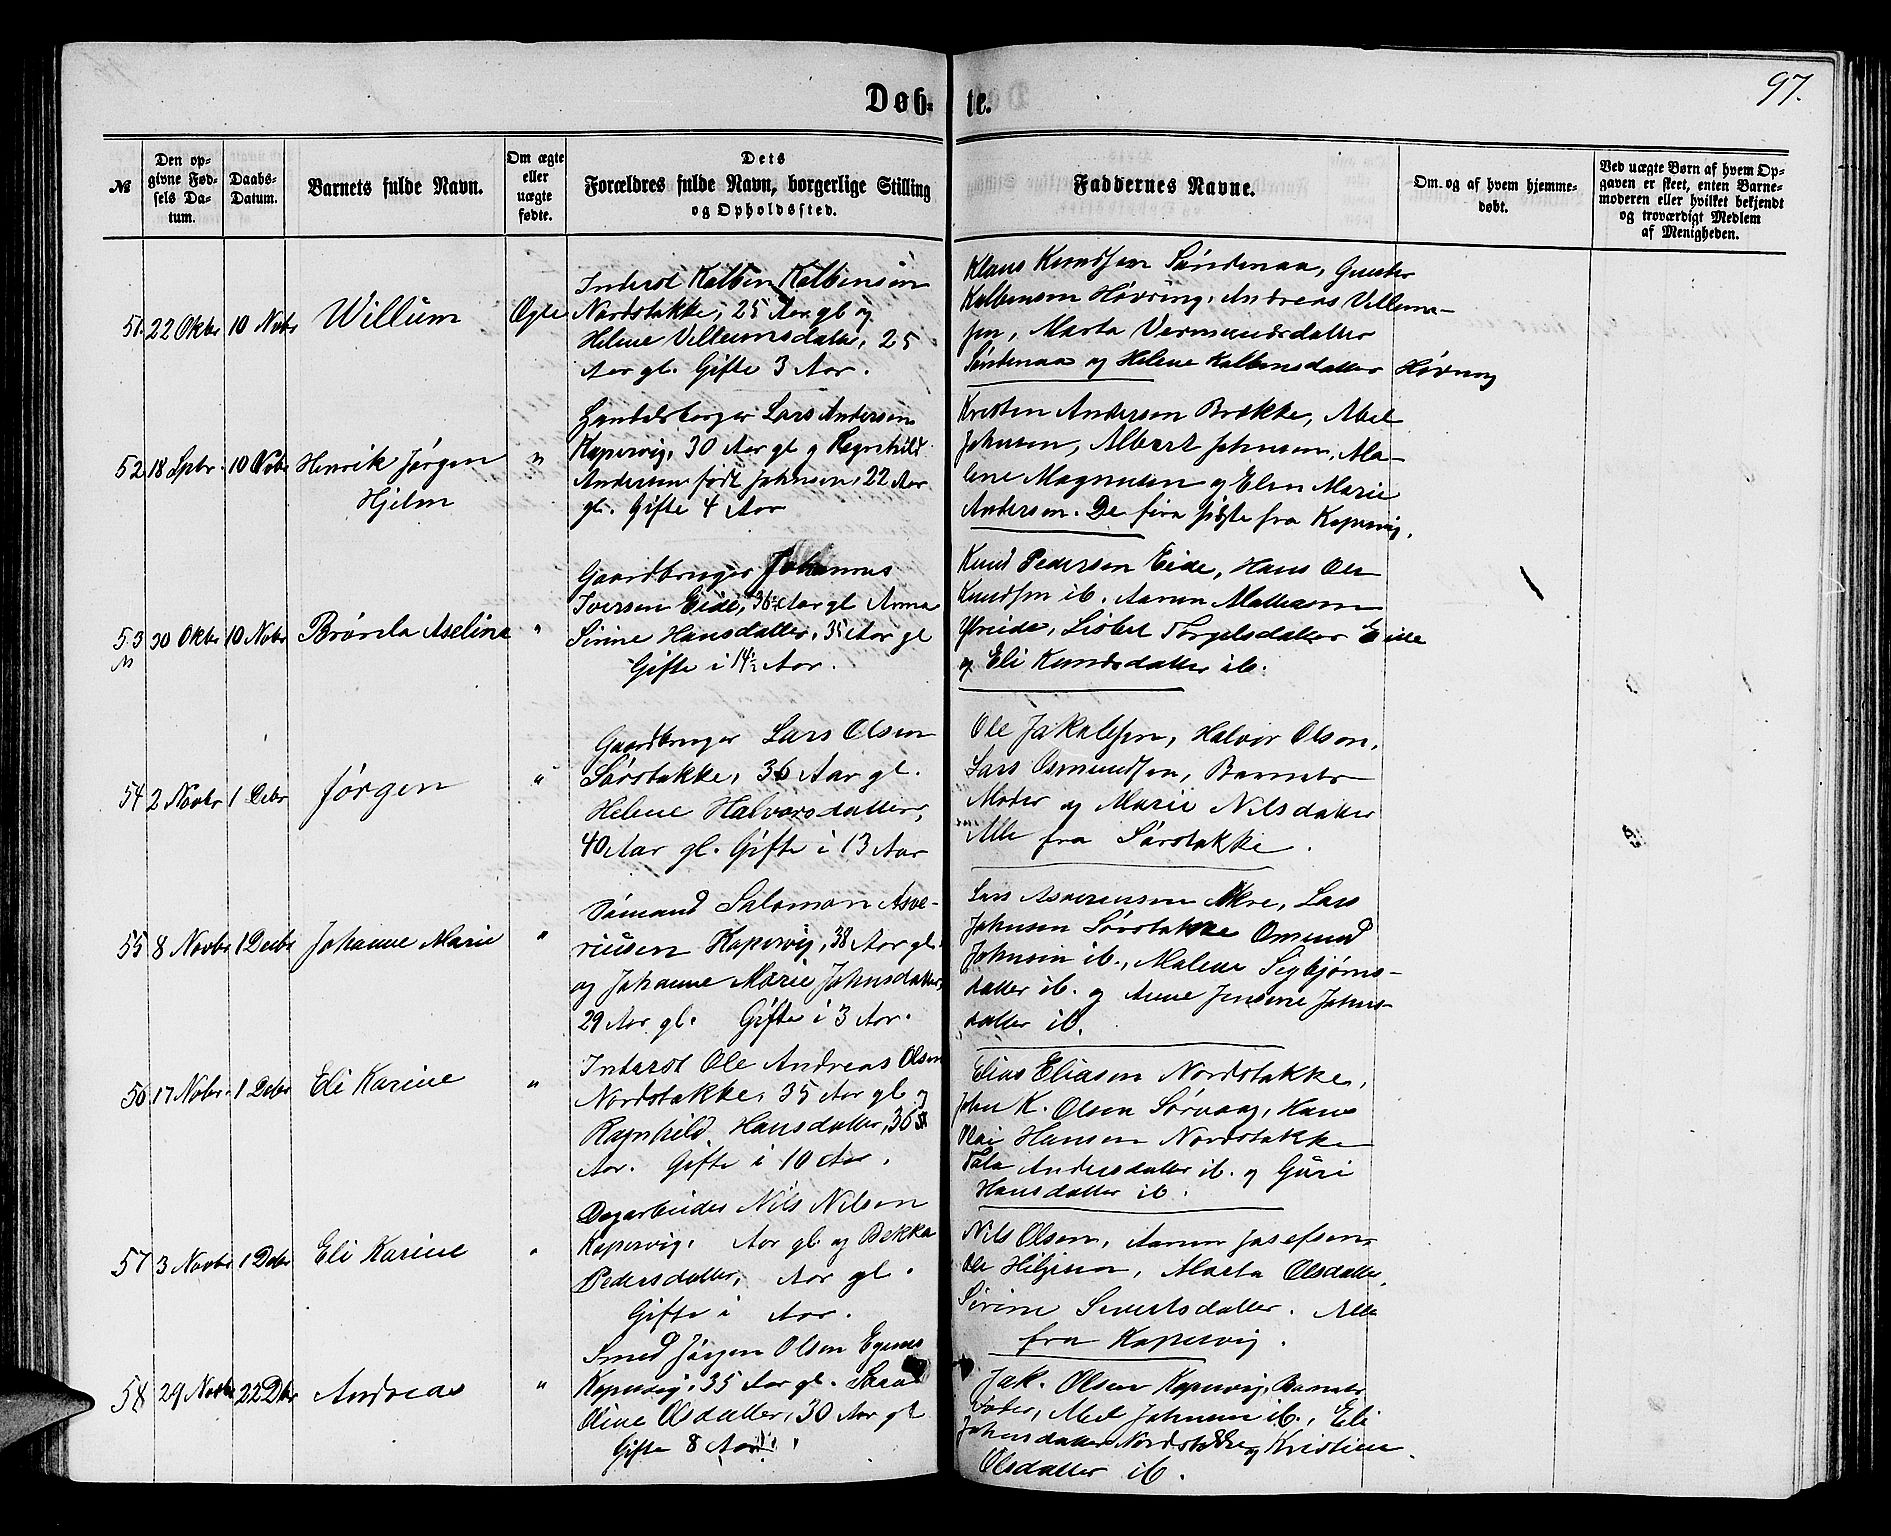 97.
Døb- te.
№
Den op-
givne Fød-
sels Da-
tum.
Daabs-
Datum.
Barnets fulde Navn.
Om ægte
eller
uægte
fødte.
Dets
Forældres fulde Navn, borgerlige Stilling
og Opholdssted.
Faddernes Navne.
Om og af hvem hjemme-
døbt.
Ved uægte Børn af hvem Op-
gaven er skeet, enten Barne-
moderen eller hvilket bekjendt
og troværdigt Medlem
af Menigheden.
51. 22 Oktbr 10 Novbr Willum Ægte
Inderst Kolben Kolbensen
Nordstokke, 25 Aar gl og
Helene Villumsdatter, 25
Aar gl. Gifte 3 Aar.
Klaus Knudsen Sandenaa,
Kolbensen Høvring, Andreas Villum-
sen, Marta Vermundsdatter
Sandenaa og Helene Kolbensdatter Høvring
52 18 Spbr 10 Novbr Henrik Jørgen
Hjelm
"
Lars Andersen
Kopervig, 30 Aar gl og Ragnhild
Andersen født Johnsen, 22 Aar
gl. Gifte 4 Aar
Kristen Andersen Brække, Abel
Johnsen, Albert Johnsen, Ma-
lene Magnusen og Elen Marie
Andersen. De fire sidste fra Kopervig.
53 30 Oktbr 10 Novbr Brønla Aseline "
N
Gaardbruger Johannes
Iversen Eide, 36½ Aar gl Anna
Sirine Hansdatter, 35 Aar gl
Gifte i 14½ Aar.
Knud Pedersen Eide, Hans Ole
Knudsen ib. Aamun
Lisbet Torgelsdatter Eide
og Eli Knudsdatter ib.
54 2 Novbr 1 Debr Jørgen "
Gaardbruger Lars Olsen
Sørstokke, 36 Aar gl.
Helene Halvorsdatter,
40 Aar gl. Gifte i 13 Aar
Ole Jakobsen, Halvor Olsen,
Lars Osmundsen, Barnets
Moder og Marie Nilsdatter
Alle fra Sørstokke.
55 8 Novbr 1 Decbr Johanne Marie "
Sømand Salomon Asve-
riusen Kopervig, 38 Aar gl.
og Johanne Marie Johnsdatter,
29 Aar gl. Gifte i 3 Aar.
Lars Asveriusen Akre, Lars
Johnsen Sørstokke Omund
Johnsen ib., Malene Sigbjørns-
datter ib. og Anne Jensine Johns-
datter ib.
56 17 Novbr. 1 Debr Eli Karine "
Inderst Ole Andreas Olsen
Nordstokke, 35 Aar gl og
Ragnhild Hansdatter, 36
Aar. Gifte i 10 Aar.
Elias Eliasen Nordstokke,
John K. Olsen Sørvaag, Hans
Hansen Nordstokke
Andersdatter ib. og Guri
Hansdatter ib.
57 3 Novbr 1 Debr Eli Karine "
Dagarbeider Nils Nilsen
Kopervig, Aar gl. og Bekka
Pedersdatter, Aar gl.
Gifte i Aar.
Nils Olsen, Aamun Josefsen,
Ole Helgesen, Marta Olsdatter,
Sirine Sivertsdatter. Alle
fra Kopervig.
58 29 Novbr 22 Dbr Andreas "
Smed Jørgen Olsen Egenes
Kopervig, 35 Aar gl. Sara
Oline Olsdatter, 30 Aar gl
Gifte 8 Aar.
Jak. Olsen Kopervig, Barnets
Fader, Abel Johnsen ib., Eli
Johnsdatter Nordstokke og Kristine
Olsdatter ib.